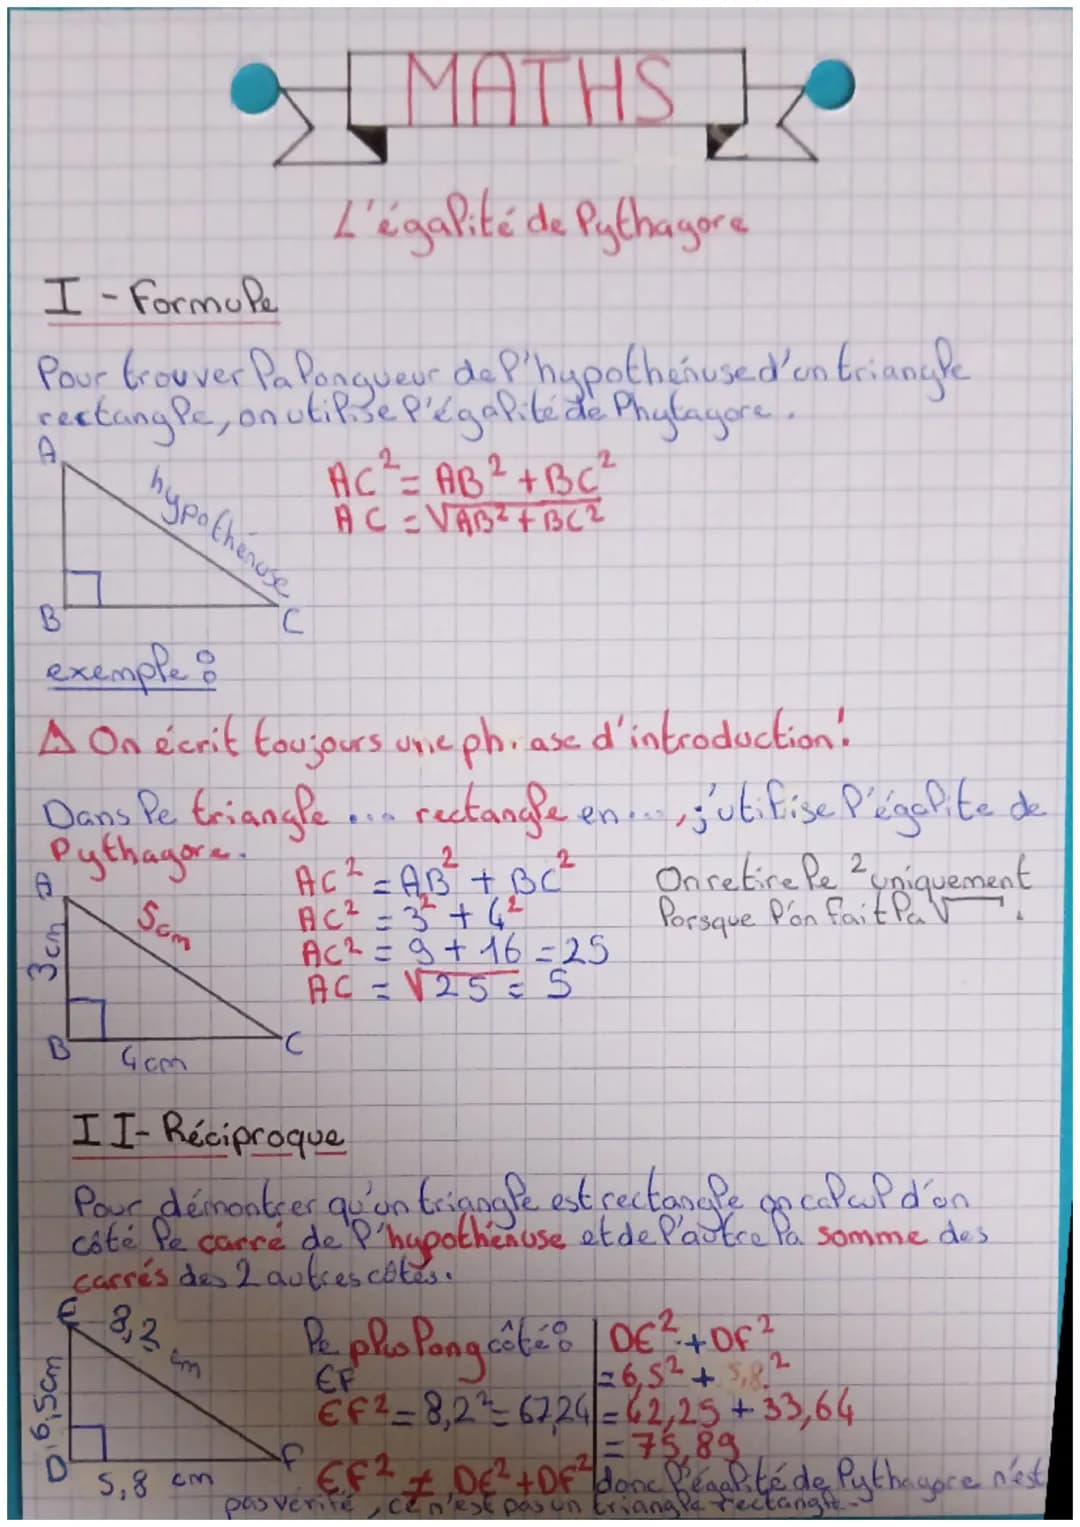 MATHS
L'égalité de Pythagore
I - Formule
Pour trouver la longueur de l'hypothénuse d'un triangle
rectangle, on utilise l'égalité de Phytagore.
A
hypothénuse
B
C
AC² = AB² + BC²
AC = √AB² + BC²
exemple :
⚠ On écrit toujours une phrase d'introduction !
Dans le triangle ... rectangle en ..., j'utilise l'égalite de
Pythagore.
A
3cm
5cm
B
4cm
C
AC² = AB² + BC²
AC² = 3² + 4²
AC² = 9 + 16 = 25
AC = √25 = 5
On retire le ² uniquement
lorsque l'on fait la √ .
II - Réciproque
Pour démontrer qu'un triangle est rectangle on calcul d'un
côté le carré de l'hypothénuse et de l'autre la somme des
carrés des 2 autres côtés.
E
8,2 cm
6,5cm
D
5,8 cm
F
le plus long côté :
EF
EF² = 8,2² = 67,24
DE² + DF²
= 6,5² + 5,8²
= 42,25 + 33,64
= 75,89
EF² ≠ DE² + DF² donc l'égalité de Pythagore n'est
pas vérifié, ce n'est pas un triangle rectangle.